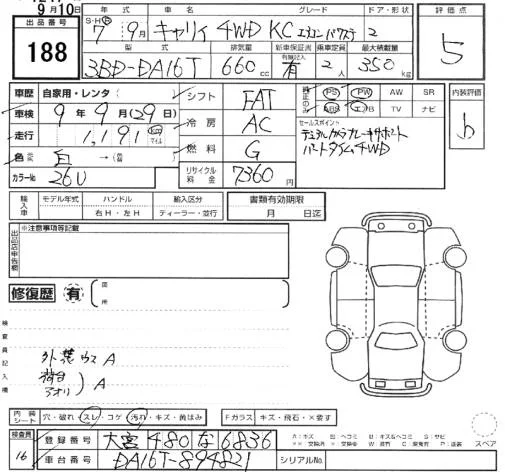 9月10日
出品番号
188
S・H・R 年式 車名 グレード ドア・形状 評価点
7 9月 キャリィ 4WD KC エアコンパワステ 2
5
型式 排気量 新車保証書 乗車定員 最大積載量
3BD-DA16T 660 cc 有 2人 350 kg
車歴 自家用・レンタ シフト FAT PS PW AW SR 内装評価
車検 9年9月(29日) 冷房 AC ABS エアB TV ナビ b
走行 1,191 Km マイル
セールスポイント
デュアルカメラブレーキサポート
パートタイム4WD
色 白 燃料 G
カラーNo 26U リサイクル料金 7360円
輸入車 モデル年式 ハンドル 右H・左H 輸入区分 ディーラー・並行 書類有効期限 月 日迄
出品店申告欄 ※注意事項等記載
修復歴 有 箇所
検査員記入欄
外装ウス A
荷台
アオリ A
内装シート 穴・破れ・スレ・コゲ 汚れ・キズ・黄ばみ Fガラス キズ・飛石・×要す
検査員 16
登録番号 大宮 480 な 6836
車台番号 DA16T-894821 シリアルNo.
スペア